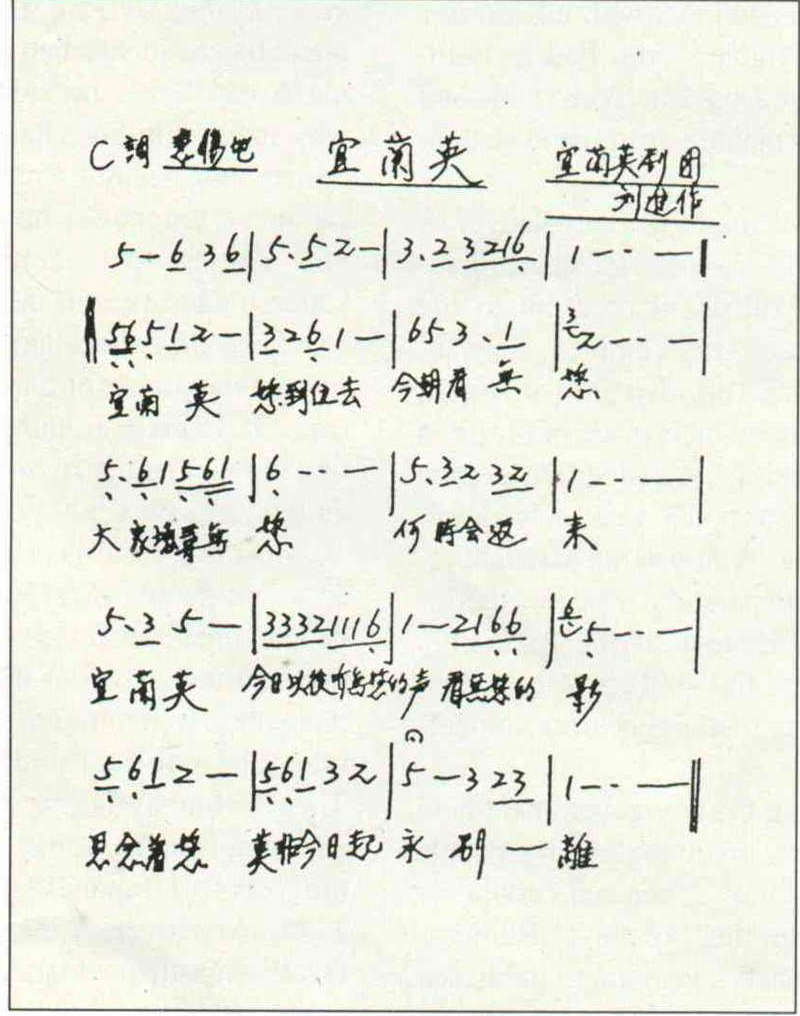 C調 悲傷地 宜蘭英 宜蘭英剧团
刘进作
5 – 6 3 6 | 5. 5 2 – | 3. 2 3 2 1 6 | 1 - - – |
5 6 5 1 2 – | 3 2 6 1 – | 6 5 3 . 1 | 3 2 - - – |
宜蘭英 您到位去 今朝看無 您
5. 6 1 5 6 1 | 6 - - – | 5. 3 2 3 2 | 1 - - – |
大家 無 您 何時会返 来
5. 3 5 – | 3 3 3 2 1 1 1 6 | 1 – 2 1 6 6 | 6 5 - - – |
宜蘭英 今日以後 您的声 看無您的 影
5 6 1 2 – | 5 6 1 3 2 | 5 – 3 2 3 | 1 - - – |
思念着您 莫非今日起 永别一離